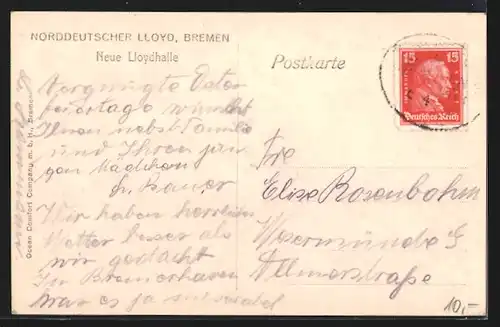 NORDDEUTSCHER LLOYD, BREMEN
Neue Lloydhalle
Postkarte
15 15
Deutsches Reich
Vergnügte Oster
feiertage wünscht
Ihnen nebst Familie
und Ihren jun
gen Mädchen
H. Bauer
Wir haben herrliches
Wetter besser als
wir gedacht
In Bremerhaven
war es ja
Frl
Elise Rosenbohm
Wesermünde G
Ulmerstraße
10,-
Ocean Comfort Company m. b. H., Bremen